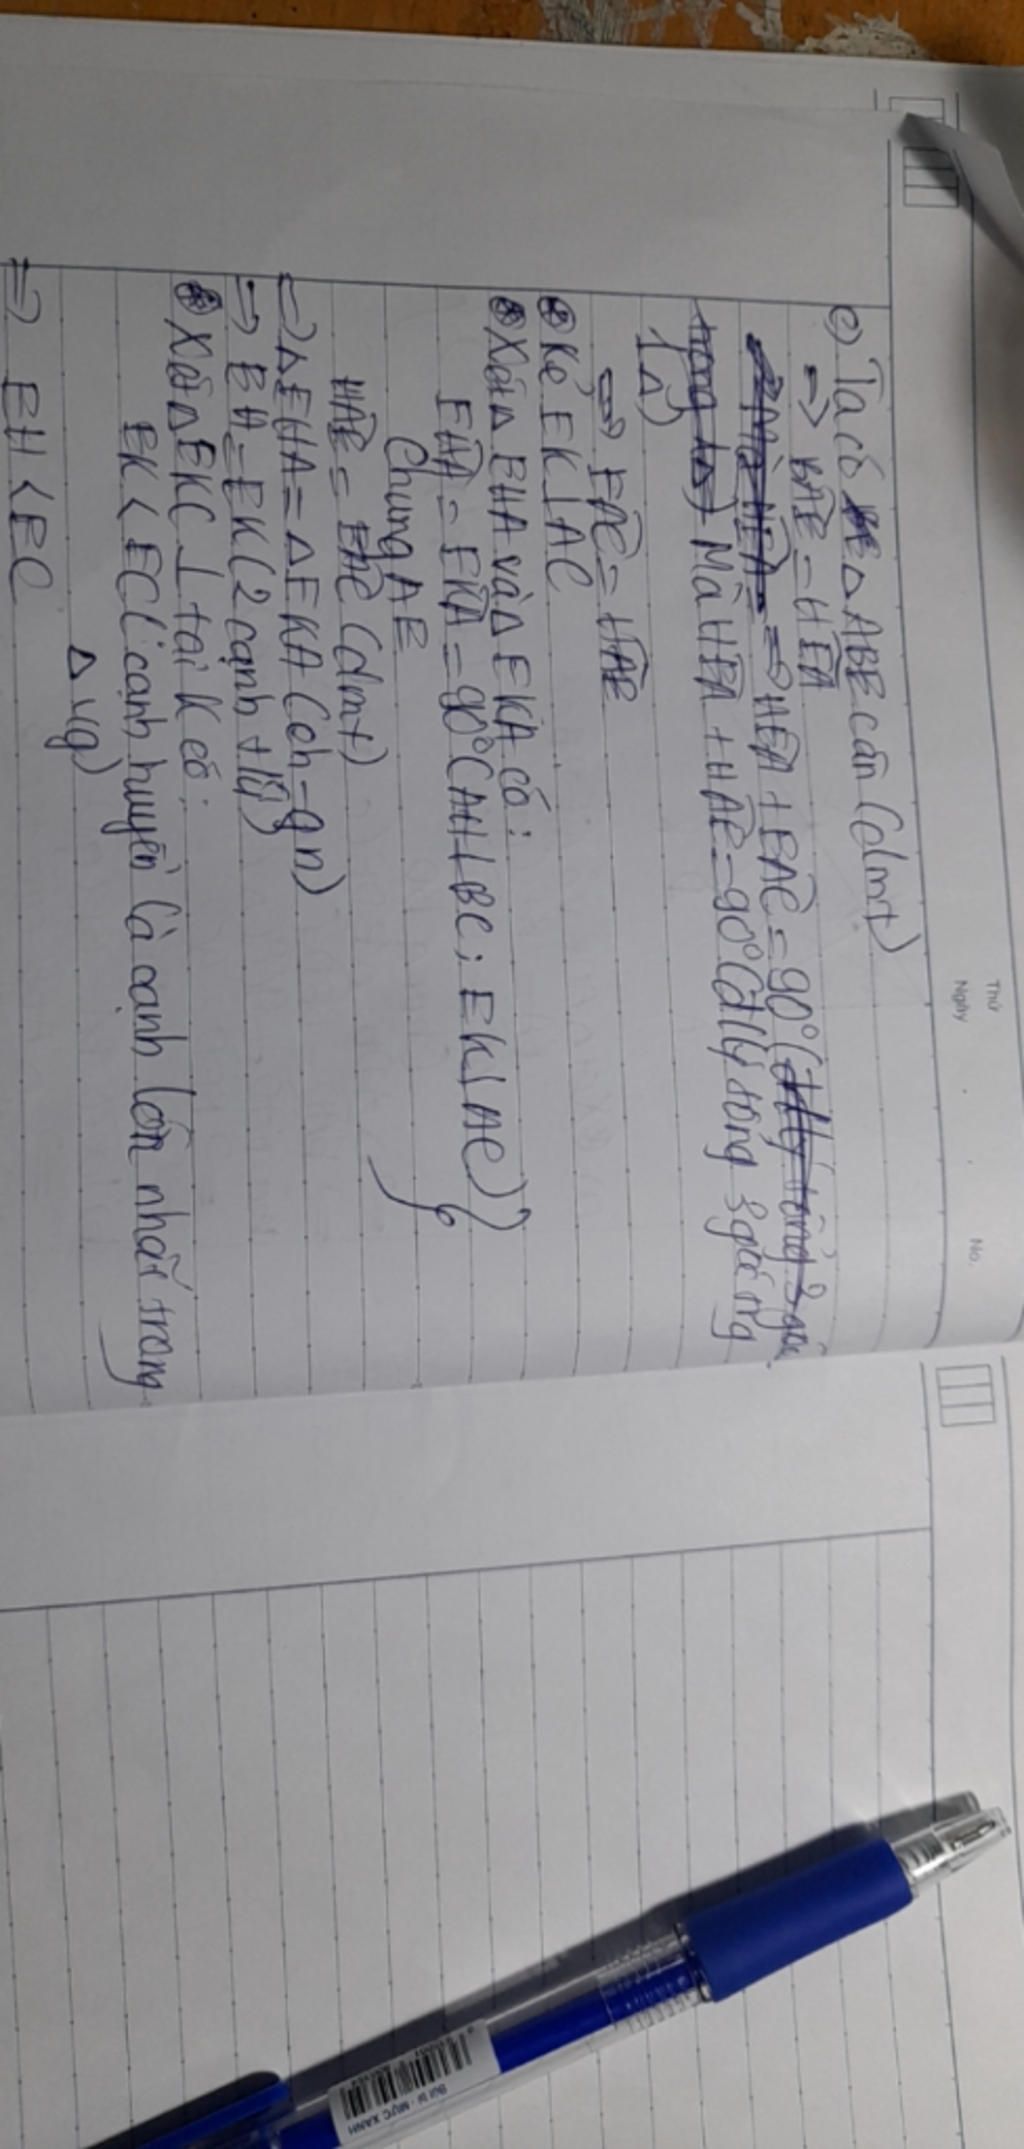 Thứ
Ngày
No.
c) Ta có △ABE cân (cmt)
=> BÂE = HÊA
=> HÊA + EÂC = 90°
Mà HÊA + HÂE = 90° (đlý tổng 3 góc trg
1△)
=> EÂC = HÂE
* Kẻ EK⊥AC
* Xét △EHA và △EKA có:
EĤA = EK̂A = 90° (AH⊥BC; EK⊥AC)
Chung AE
HÂE = EÂC (cmt)
=> △EHA = △EKA (ch-gn)
=> EH = EK (2 cạnh tứ)
* Xét △EKC ⊥ tại K có:
EK < EC (cạnh huyền là cạnh lớn nhất trong
△ vg)
=> EH < EC
Bút bi - MỰC XANH